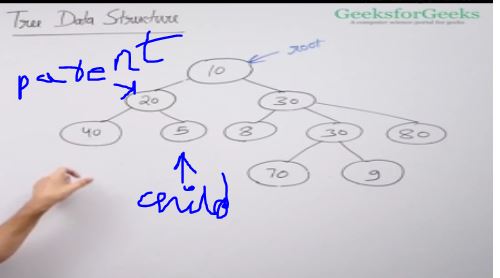 Tree Data Structure
GeeksforGeeks
A computer science portal for geeks
root
parent
10
20
30
40
5
8
30
80
70
9
child